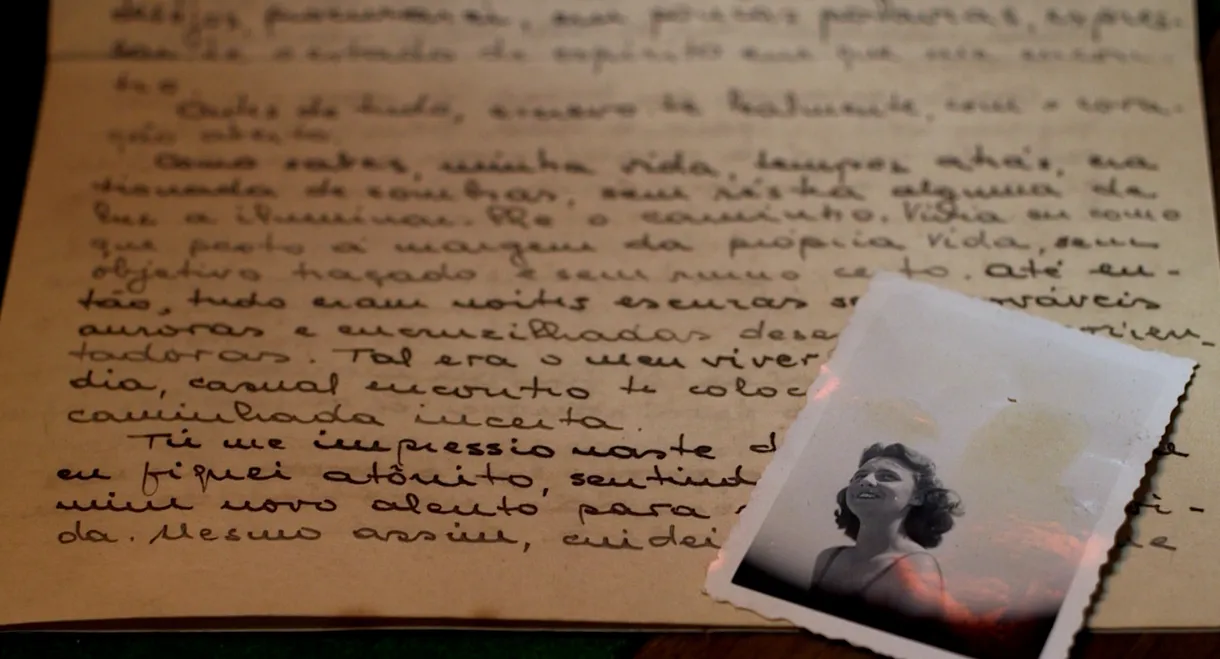 desejos, procurarei, em poucas palavras, expres-
sar-te o estado de espírito em que me encon-
tro.
Antes de tudo, escrevo-te lealmente, com o cora-
ção aberto.
Como sabes, minha vida, tempos atrás, era
tionada de sombras, sem réstia alguma de
luz a iluminar-lhe o caminho. Vivia eu como
que posto à margem da própria vida, sem
objetivo traçado e sem rumo certo. Até en-
tão, tudo eram noites escuras
auroras e encruzilhadas
tadoras. Tal era o meu viver
dia, casual encontro te
caminhada incerta.
Tú me impressionaste
eu fiquei atônito,
mim novo alento para
da. Mesmo assim, cuidei